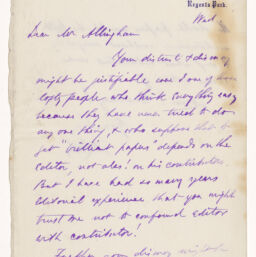 Regents Park.
Wed.
Dear Mr Allingham
Your distrust & dismay
might be justifiable were I one of those
lofty people who think everything easy
because they have never tried to do
any one thing, & who suppose that to
get "brilliant papers" depends on the
Editor, not alas! on his contributors.
But I have had so many years
Editorial experience that you might
trust me not to confound editor
with contributor!
Farther your dismay might